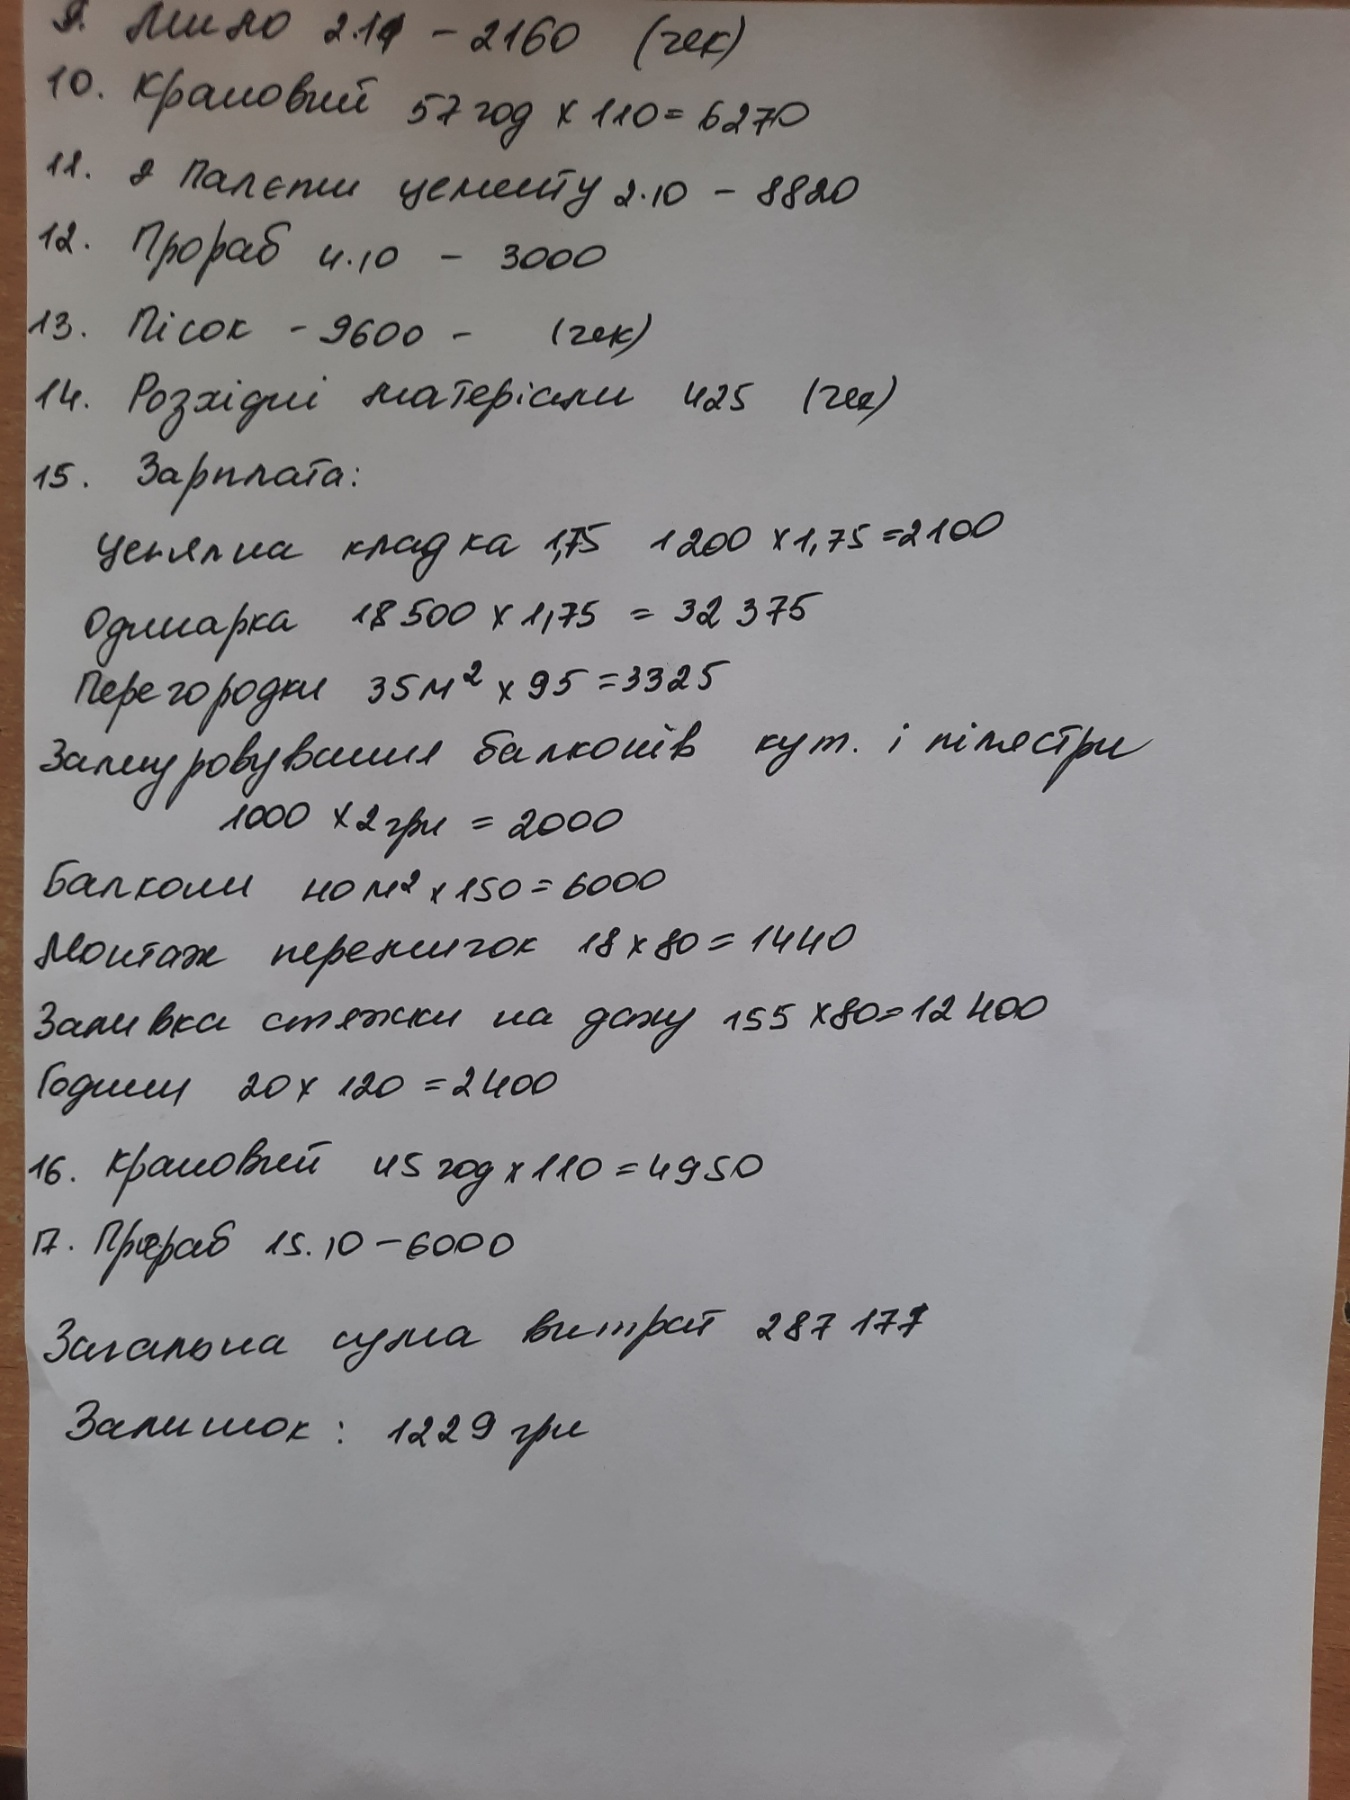 9. Мило 2.11 - 2160 (чек)
10. Крановий 57 год x 110 = 6270
11. 2 Палєти цементу 2.10 - 8820
12. Прораб 4.10 - 3000
13. Пісок - 9600 - (чек)
14. Розхідні матеріали 425 (чек)
15. Зарплата:
Цегляна кладка 1,75 1200 x 1,75 = 2100
Одинарка 18500 x 1,75 = 32 375
Перегородки 35 м² x 95 = 3325
Замуровування балконів кут. і пілястри
1000 x 2 грн = 2000
Балкони 40 м² x 150 = 6000
Монтаж перемичок 18 x 80 = 1440
Заливка стяжки на даху 155 x 80 = 12 400
Години 20 x 120 = 2400
16. Крановий 45 год x 110 = 4950
17. Прораб 15.10 - 6000
Загальна сума витрат 287 177
Залишок: 1229 грн